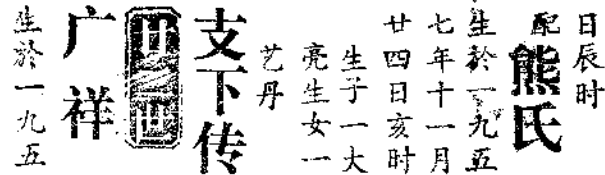 日辰时
配熊氏
生於一九五
七年十一月
廿四日亥时
生子一大
亮生女一
艺丹
支下传
广祥
生於一九五